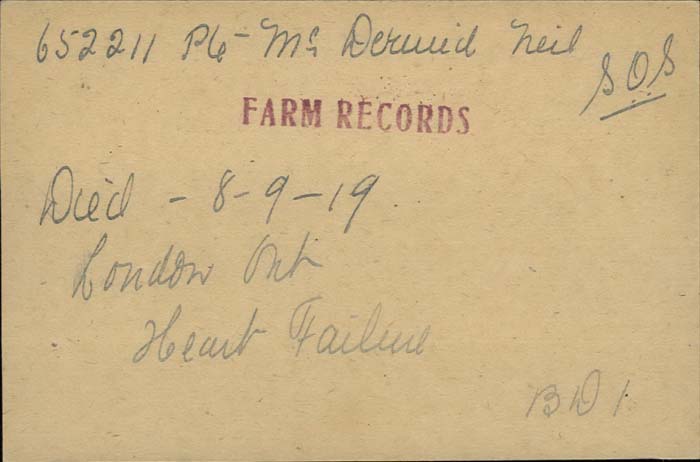 652211 Pte Mc Dermid Neil
SOS
FARM RECORDS
Died - 8-9-19
London Ont
Heart Failure
BD 1